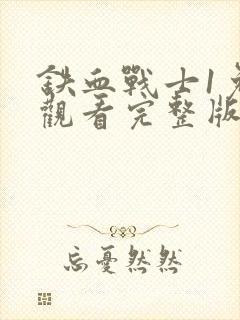 鉄血戰士1免
觀看完整版
忘憂然然